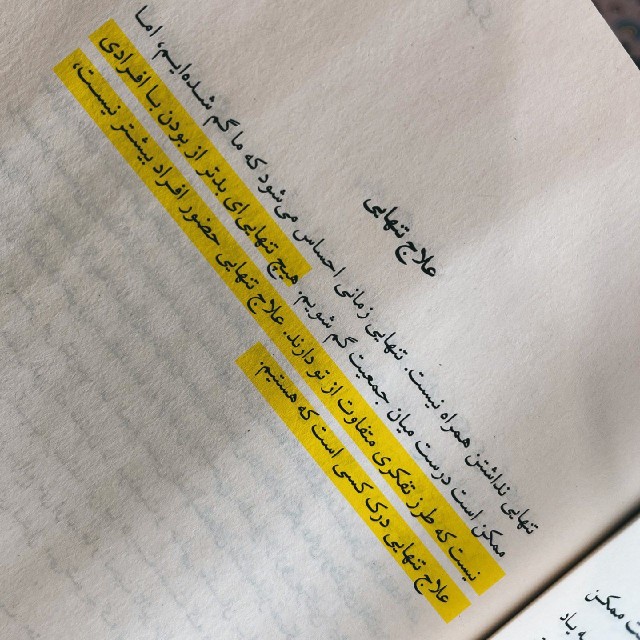 علاج تنهایی
تنهایی نداشتن همراه نیست. تنهایی زمانی احساس می‌شود که ما گم شده‌ایم، اما
ممکن است درست میان جمعیت گم شویم. هیچ تنهایی‌ای بدتر از بودن با افرادی
نیست که طرز تفکری متفاوت از تو دارند. علاج تنهایی حضور افراد بیشتر نیست،
علاج تنهایی درک کسی است که هستیم.
ممکن
یاد